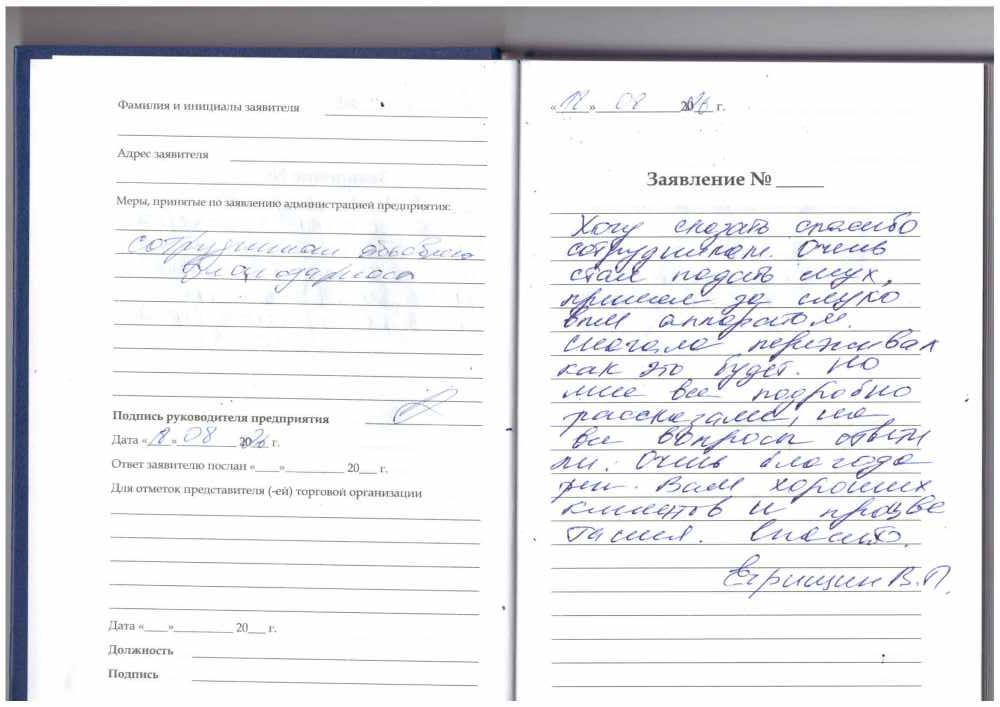 Фамилия и инициалы заявителя
Адрес заявителя
Меры, принятые по заявлению администрацией предприятия:
сотрудникам объявлена
благодарность
Подпись руководителя предприятия
Дата «12» 08 2026 г.
Ответ заявителю послан «____»__________ 20___ г.
Для отметок представителя (-ей) торговой организации
Дата «____»__________ 20___ г.
Должность
Подпись
«12» 08 2026 г.
Заявление № _____
Хочу сказать спасибо
сотрудникам. Очень
стал падать слух,
пришел за слухо
вым аппаратом.
Сначала переживал
как это будет. Но
мне все подробно
рассказали, на
все вопросы ответи
ли. Очень благода
рен. Вам хороших
клиентов и процве
тания. Спасибо.
В.П.